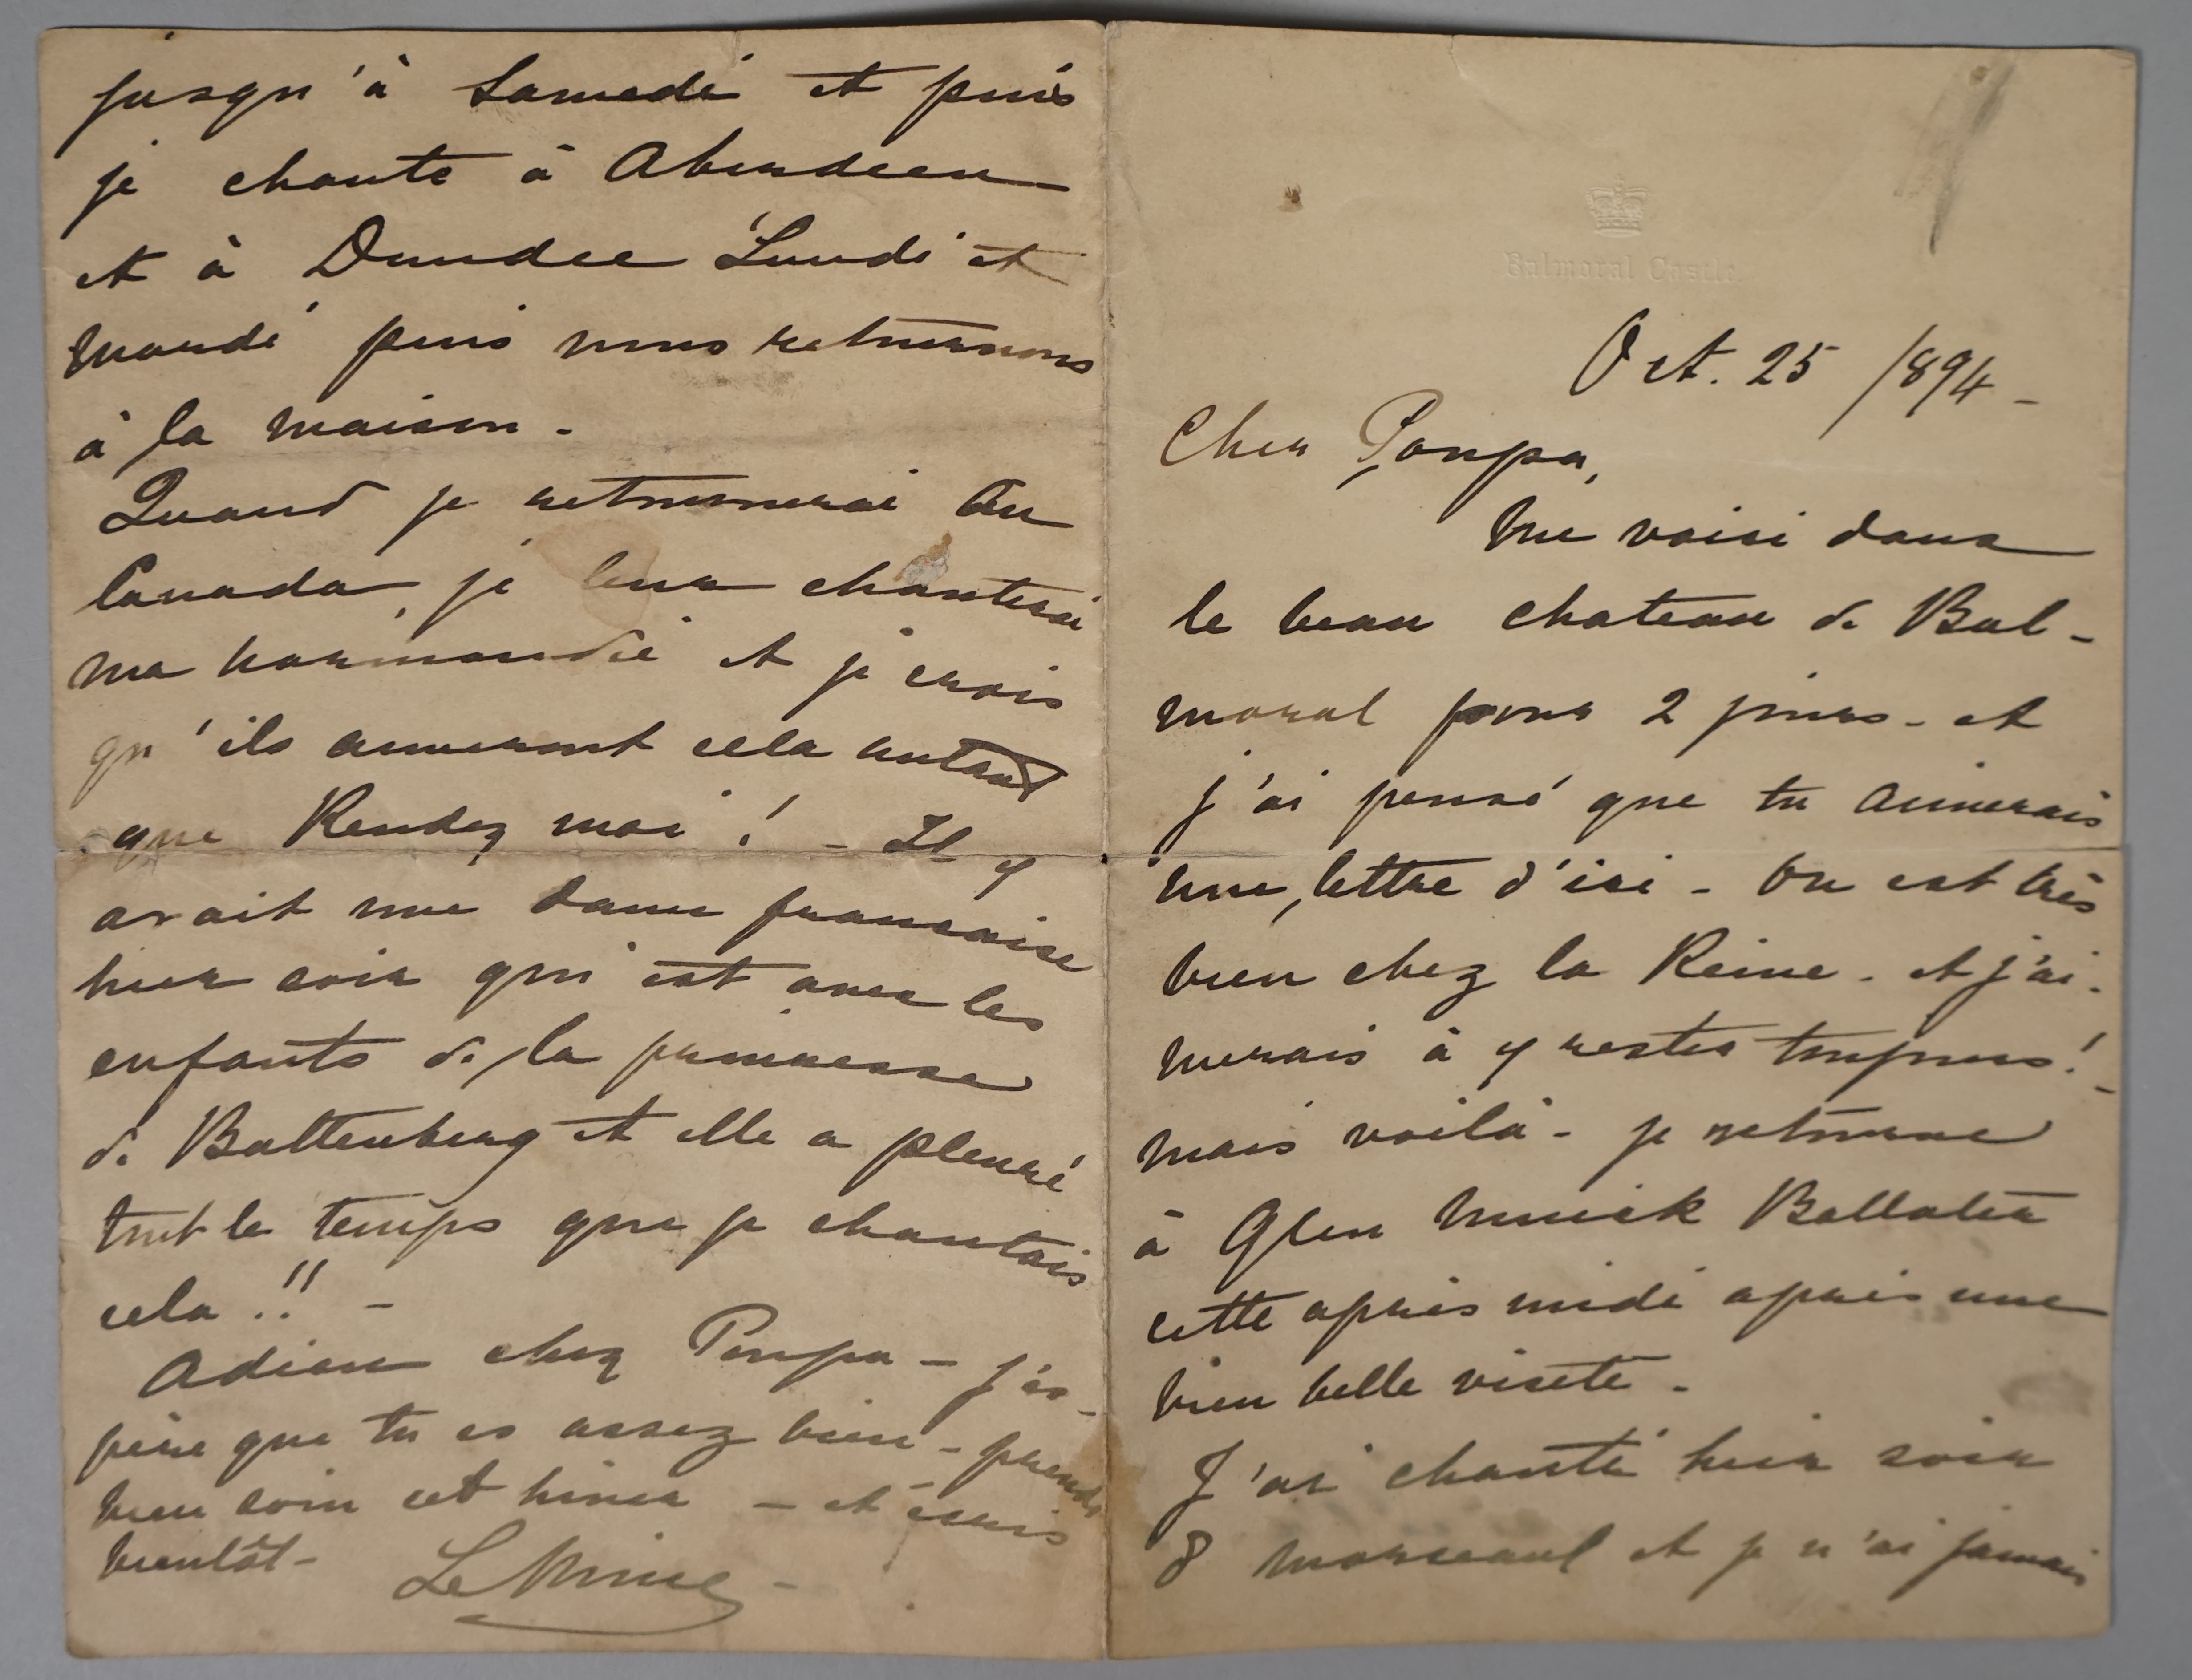 Balmoral Castle
Oct. 25 /894 -
Cher Poupa,
Me voici dans
le beau chateau de Bal -
moral pour 2 jours - et
j'ai pensé que tu aimerais
une lettre d'ici - On est très
bien chez la Reine - et j'ai -
merais à y rester toujours! -
mais voilà - je retourne
à Glen Muick Ballater
cette après midi après une
bien belle visite -
J'ai chanté hier soir
8 morseaux et je n'ai jamais
jusqu'à Samedi et puis
je chante à Aberdeen -
et à Dundee Lundi et
mardi puis nous retournons
à la maison -
Quand je retournerai au
Canada, je leur chanterai
ma normandie et je crois
qu'ils aimeront cela autant
que Rendez moi! - Il y
avait une dame francaise
hier soir qui est avec les
enfants de la princesse
de Battenberg et elle a pleuré
tout le temps que je chantais
cela!! -
Adieu cher Poupa - j'es -
père que tu es assez bien - prends
bien soin cet hiver - et écris
bientôt -